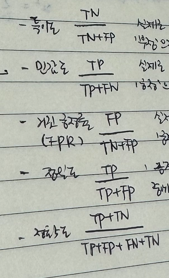 - 특이도 TN / TN+FP 실제로
- 민감도 TP / TP+FN 실제로
- 거짓 긍정률 (FPR) FP / TN+FP
- 정밀도 TP / TP+FP
- 정확도 TP+TN / TP+FP+FN+TN